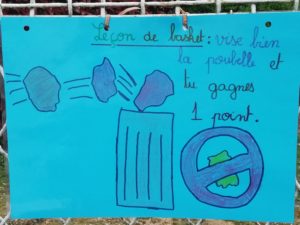 Leçon de basket : vise bien
la poubelle et
tu gagnes
1 point.